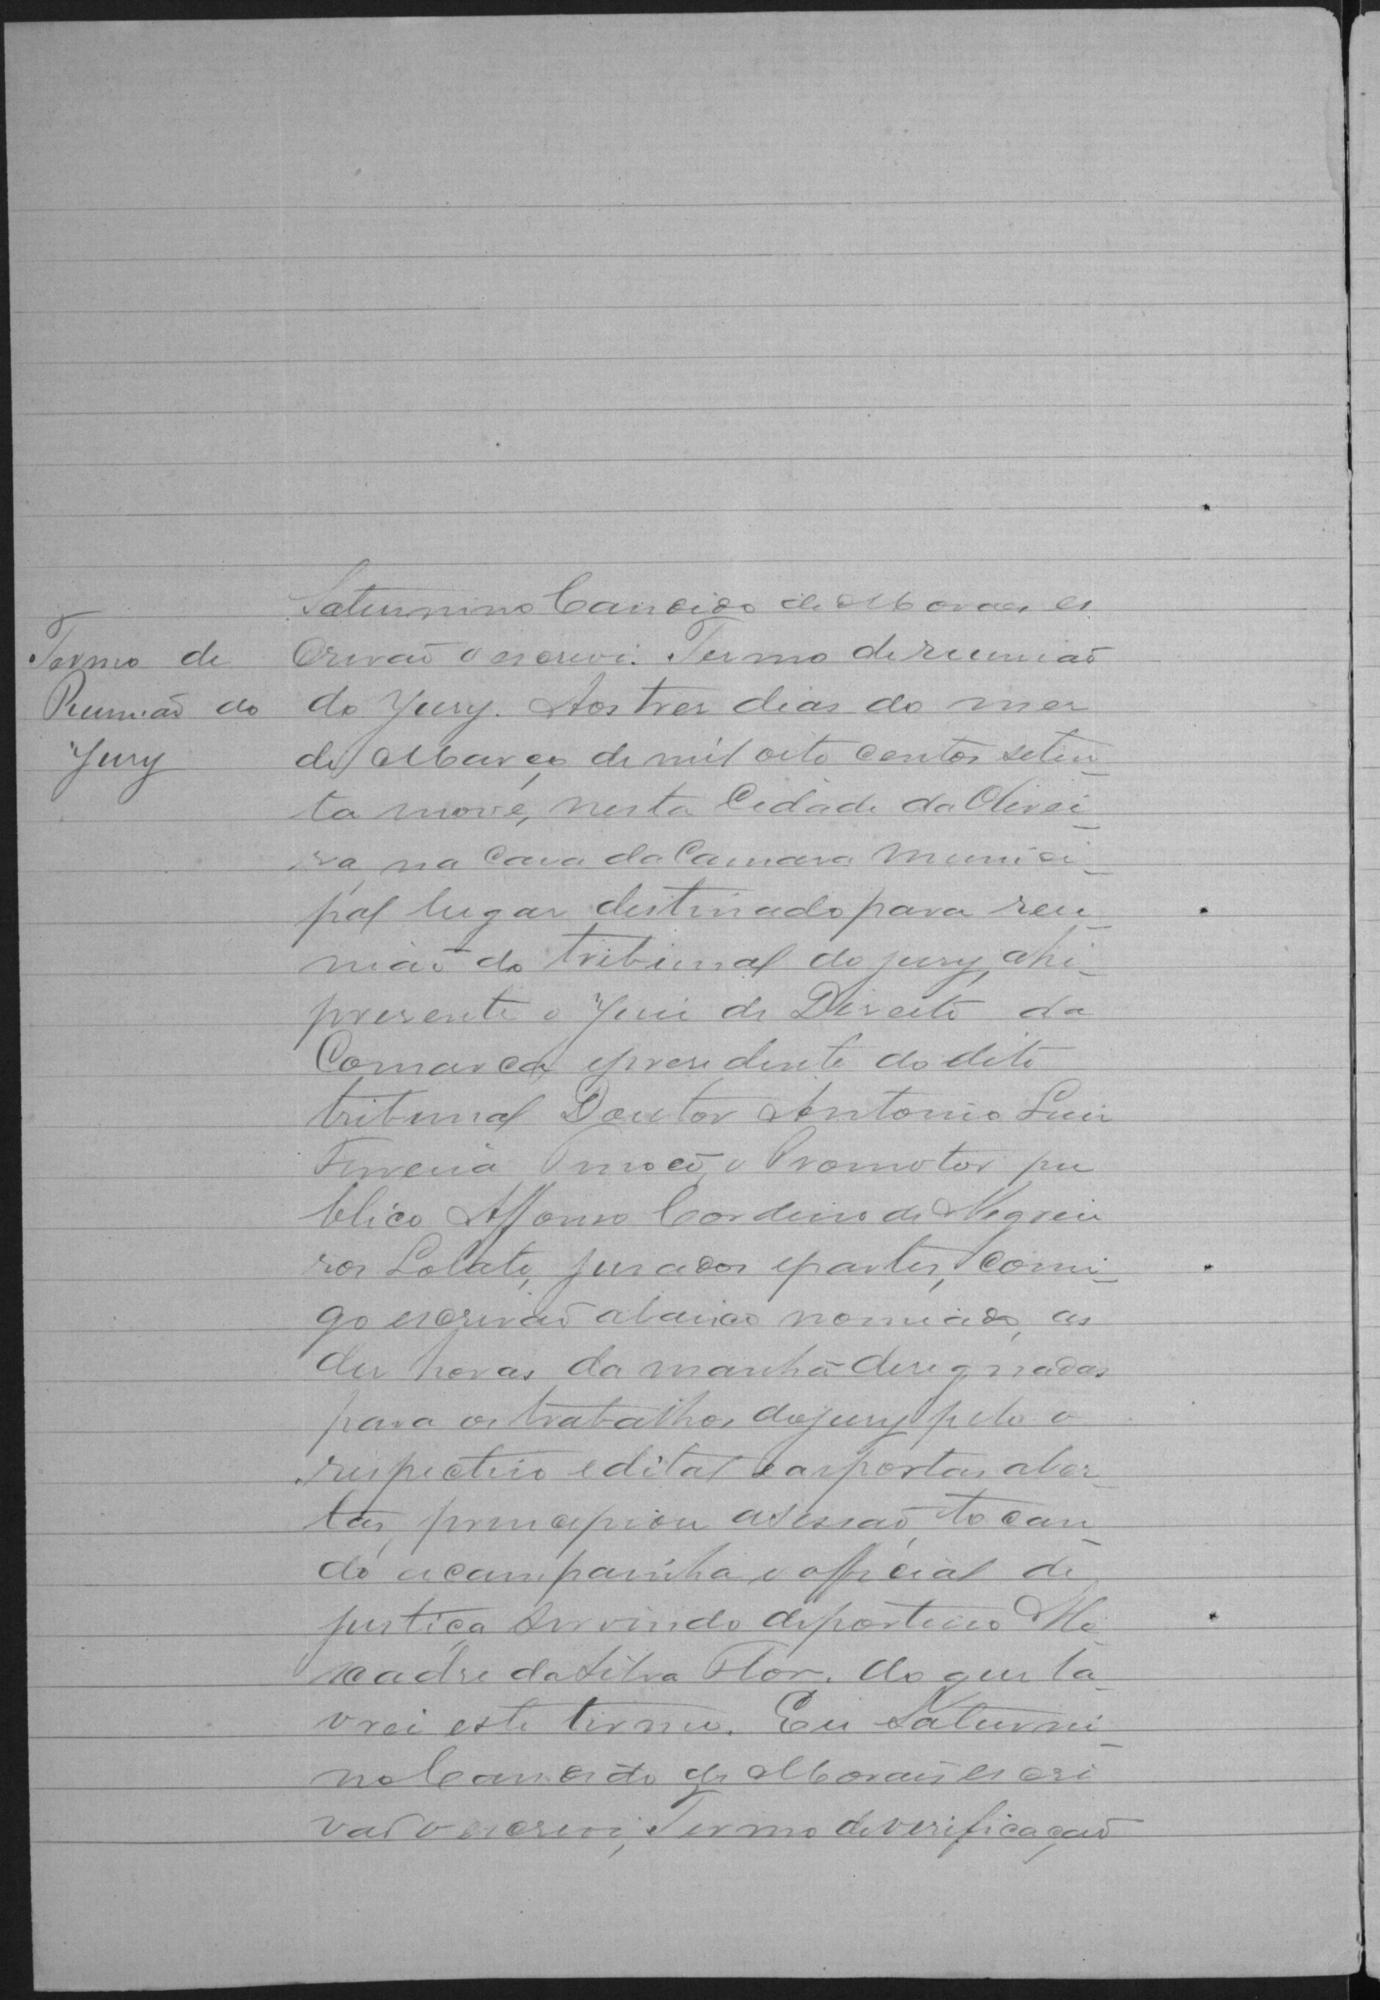 Termo de
Reunião do
Jury
Saturnino Candido de Moraes es
crivão o escrevi. Termo de reunião
do Jury. Aos tres dias do mez
de Março de mil oito centos seten-
ta nove, nesta Cidade da Olivei-
ra, na Caza da Camara Munici-
pal lugar destinado para reu-
nião do tribunal do jury, ahi-
presente o Juiz de Direito da
Comarca e presidente do dito
tribunal Doutor Antonio Luiz
Ferreira o Promotor pu
blico Affonso Cordeiro de Negrei
ros Lobato, jurados e partes, comi-
go escrivão abaixo nomeado, as
dez horas da manhã designadas
para os trabalhos do jury pelo o
respectivo edital e as portas aber-
tas, principiou a sessão, tocan-
do a campainha o official de
justiça servindo de porteiro
da Silva Flor. do que la-
vrei este termo. Eu Saturni-
no Candido de Moraes escri
vão o escrevi, Termo de verificação